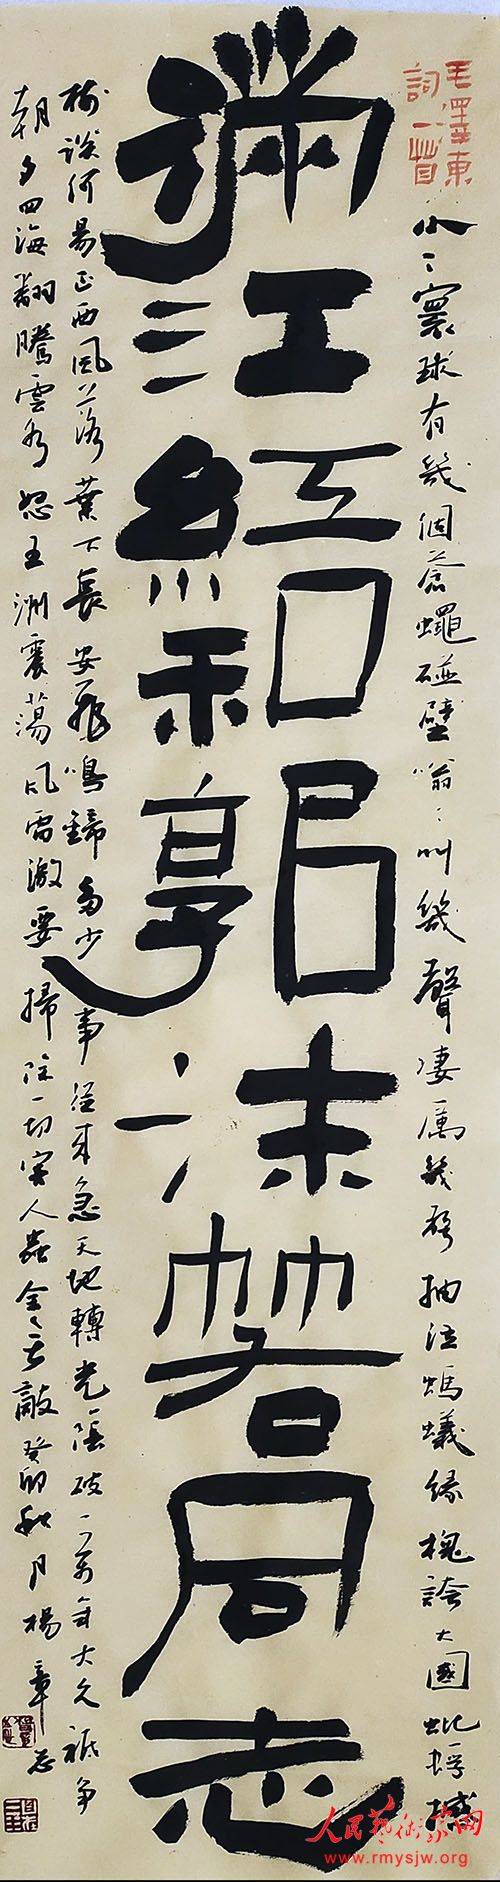 毛澤東
詞一首
滿江紅和郭沫若同志
小〻寰球有幾個蒼蠅碰壁嗡〻叫幾聲凄厲幾聲抽泣螞蟻緣槐誇大國蚍蜉撼
樹談何易正西風落葉下長安飛鳴鏑多少事從來急天地轉光陰迫一萬年太久祇爭
朝夕四海翻騰雲水怒五洲震蕩風雷激要掃除一切害人蟲全無敵癸卯秋月楊章
人民藝術家网
www.rmysjw.org